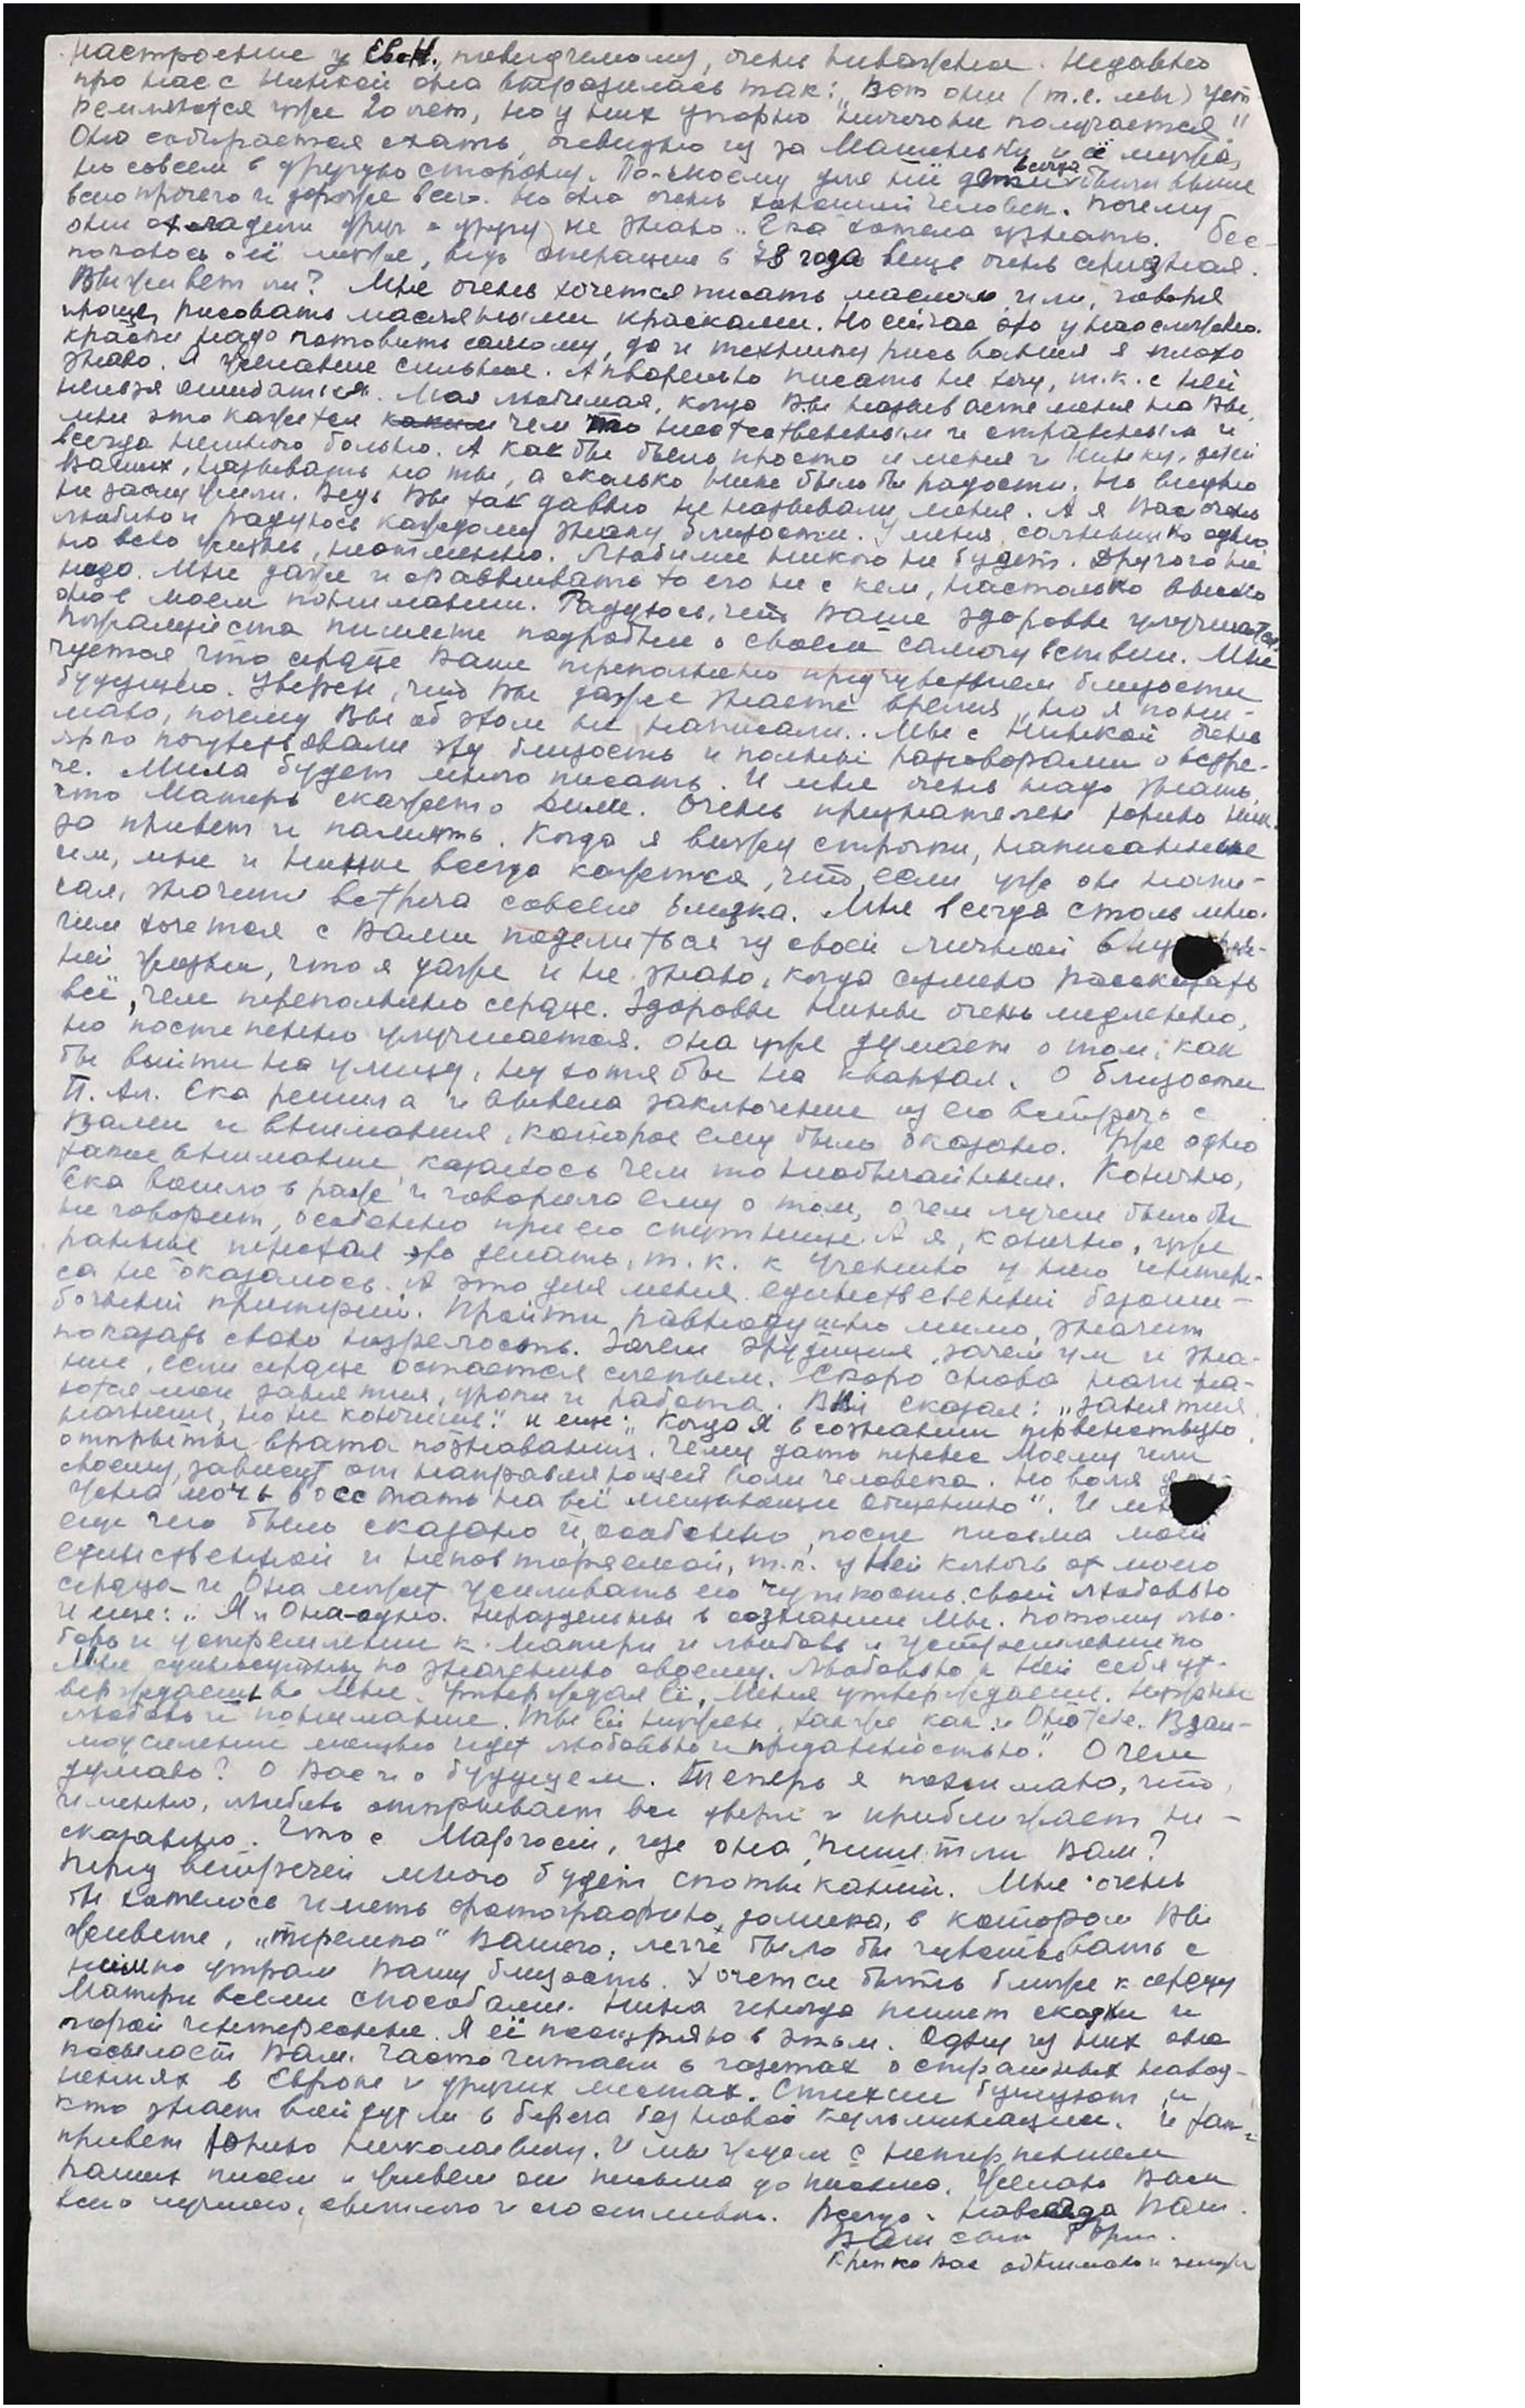 настроение у Ев.Н. повидчемому, очень неважное. Недавно
про нас с Нинкой она выразилась так: „Вот они (т.е. мы) уст-
ремляются уже 20 лет, но у них упорно ничего не получается."
Она собирается ехать, очевидно из за Машеньки и её мужа,
но совсем в другую сторону. По-моему для неё дети всегда были выше
всего прочего и дороже всего. Но она очень хороший человек. Почему
они охладели друг к другу, не знаю. Ека хотела узнать. Бес-
покоюсь о её муже, ведь операция в 78 года вещь очень серьезная.
Выживет ли? Мне очень хочется писать маслом, или, говоря
проще, рисовать масляными красками. Но сейчас это у нас сложно.
Краски надо готовить самому, да и технику рисования я плохо
знаю. А желание сильное. Акварелью писать не хочу, т.к. с ней
нельзя ошибаться. Моя любимая, когда Вы называете меня на Вы,
мне это кажется чем то неестественным и странным и
всегда немного больно. А как бы было просто и меня и Нинку, детей
Ваших, называть на ты, а сколько мне было бы радости. Но видно
не заслужили. Ведь Вы так давно не называли меня. А я Вас очень
люблю и радуюсь каждому знаку близости. У меня солнышко одно
на всю жизнь, неотменно. Любимее никого не будет. Другого не
надо. Мне даже и сравнивать то его не с кем, настолько высоко
оно в моем понимании. Радуюсь, что Ваше здоровье улучшается,
Пожалуйста пишите подробнее о своем самочувствии. Мне
чуется, что сердце Ваше переполнено предчувствием близости
будущего. Уверен, что Вы даже знаете время, но я пони-
маю, почему Вы об этом не написали. Мы с Нинкой очень
ярко почувствовали эту близость и полны разговорами о встре-
че. Мила будет много писать. И мне очень надо знать,
что Матерь скажет о Диме. Очень признателен Юрию Ник.
за привет и память. Когда я вижу строчки, написанные
им, мне и Нинке всегда кажется, что, если уже он напи-
сал, значит встреча совсем близка. Мне всегда столь мно-
гим хочется с Вами поделиться из своей личной
ней жизни, что я даже и не знаю, когда сумею рассказать
всё, чем переполнено сердце. Здоровье Нины очень медленно,
но постепенно улучшается. Она уже думает о том, как
бы выйти на улицу, ну хотя бы на квартал. О близости
П. Ал. Ека решила и вывела заключение из его встречь с
Вами и внимания, которое ему было оказано. Уже одно
такое внимание, казалось чем то необычайным. Конечно,
Ека вошла в раж и говорила ему о том, о чем лучше было бы
не говорить, особенно при его спутнице. А я, конечно, уже
раньше перестал это делать, т.к. к Учению у него интере-
са не оказалось. А это для меня единственный безоши-
бочный критерий. Пройти равнодушно мимо, значит
показать свою незрелость. Зачем эрудиция, зачем ум и зна-
ние, если сердце остается слепым. Скоро снова начина-
ются мои занятия, уроки и работа. Вл. сказал: „занятия
начнешь, но не кончишь." и еще: „Когда Я в сознании первенствую,
открыты врата познавания. Чему дать перевес Моему или
своему, зависит от направляющей воли человека. Но воля
жна мочь восстать на всё мешающее Общению". И
еще чего было сказано и, особенно, после письма моей
единственной и неповторяемой, т.к. у Ней ключь от моего
сердца и Она может усиливать его чуткость своей любовью
И еще: „Я и Она-одно. Нераздельны в сознании Мы. Потому лю-
бовь и устремление к Матери и любовь и устремление ко
Мне однозначны по значению своему. Любовью к Ней себя ут-
верждаешь во Мне. Утверждая Её, Меня утверждаешь. Нужны
любовь и понимание. Ты Ей нужен, также как и Она тебе. Взаи-
моусиление мощно идет любовью и преданностью." О чем
думаю? О Вас и о будущем. Теперь я понимаю, что,
именно, любовь открывает все двери и приближает не-
сказанное. Что с Марусей, где она, пишет ли Вам?
Перед встречей много будет спотыканий. Мне очень
бы хотелось иметь фотографию домика, в котором Вы
живете, „теремка" Вашего, легче было бы чувствовать с
ними по утрам Вашу близость. Хочется быть ближе к сердцу
Матери всеми способами. Нина иногда пишет сказки и
порой интересные. Я её поощряю в этом. Одну из них она
посылает Вам. Часто читаем в газетах о страшных навод-
нениях в Европе и других местах. Стихии бушуют, и
кто знает войдут ли в берега без новой кульминации. И так,
привет Юрию Николаевичу. И мы ждем с нетерпением
Ваших писем и живем от письма до письма. Желаю Вам
всего лучшего, светлого и счастливого. Всегда и навсегда Ваш.
Ваш сын Борис.
Крепко Вас обнимаю и